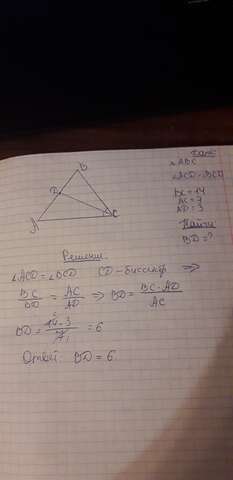 Дано:
△ABC
∠ACD=∠BCD
BC=14
AC=7
AD=3
Найти
BD=?
B
D
A
C
Решение:
∠ACD=∠BCD CD-биссектр ⇒
BC/BD = AC/AD ⇒ BD= BC·AD/AC
BD= 14·3/7 = 6
Ответ: BD=6.